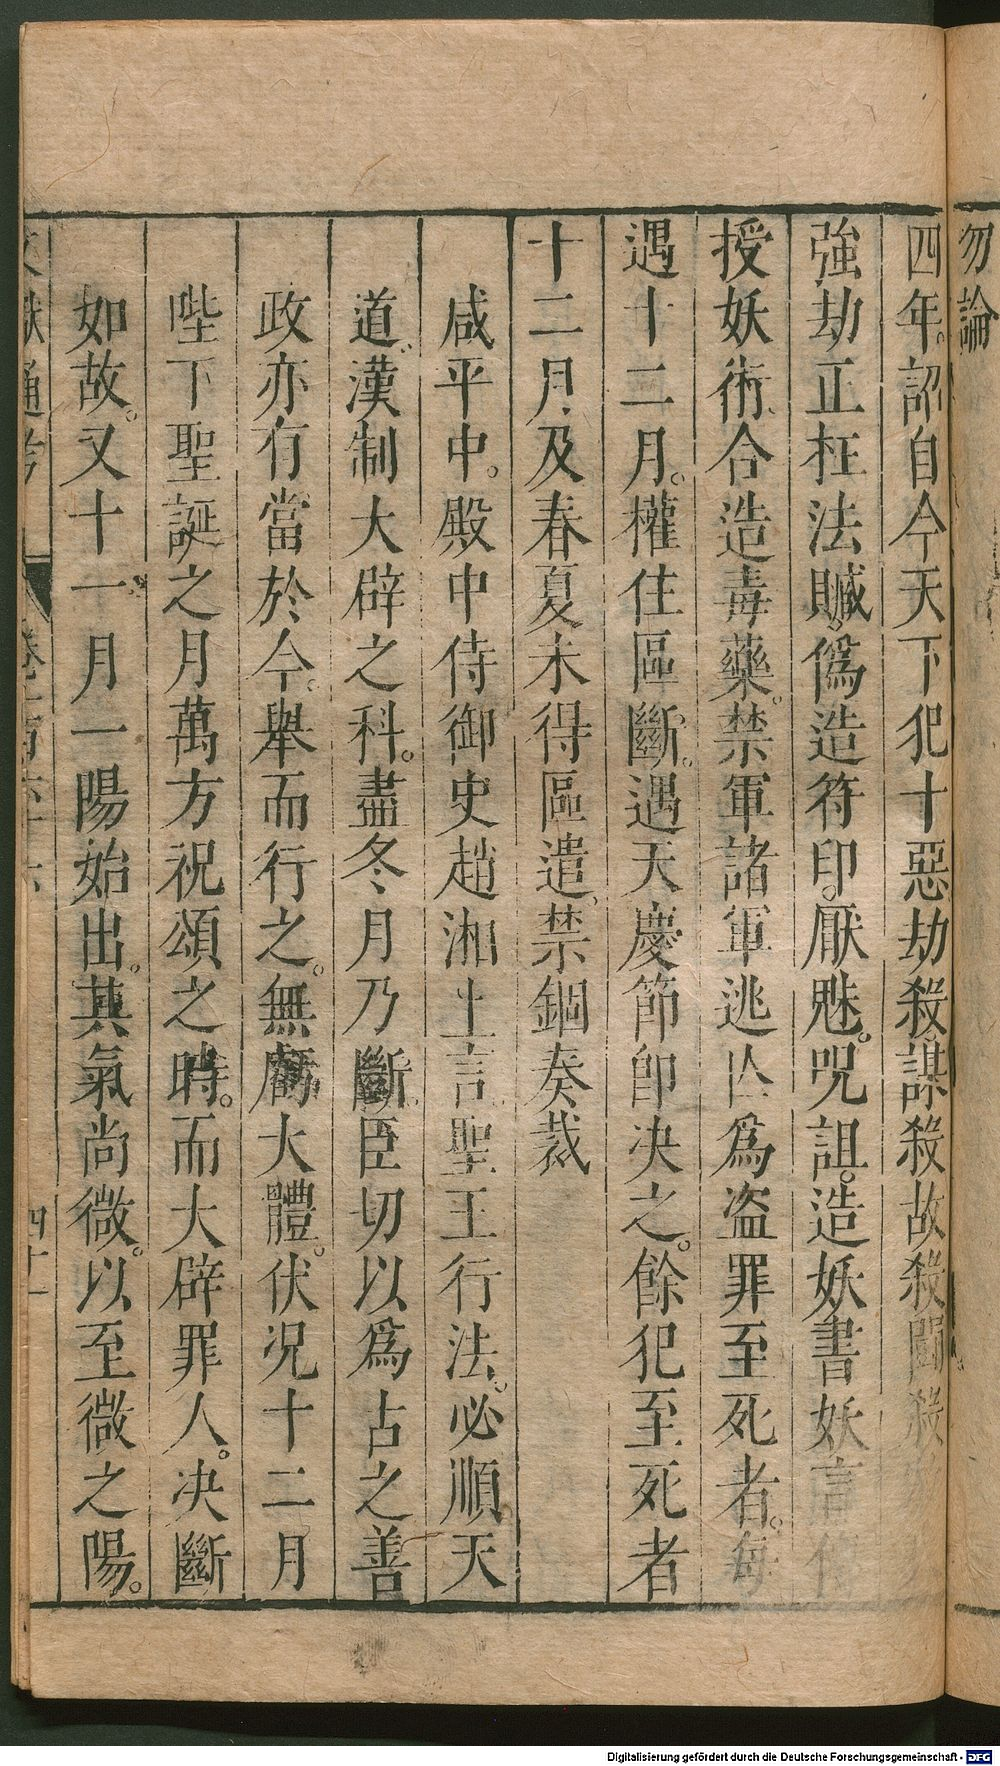 勿論
四年。詔自今天下犯十惡劫殺。謀殺故殺鬭殺
強劫正枉法贓。僞造符印。厭魅。呪詛。造妖書妖言傳
授妖術、合造毒藥。禁軍諸軍逃亾爲盗罪至死者。每
遇十二月。權住區斷。遇天慶節卽决之。餘犯至死者
十二月、及春夏未得區遣、禁錮奏裁
咸平中。殿中侍御史趙湘上言聖王行法。必順天
道。漢制大辟之科。盡冬月乃斷。臣切以爲古之善
政亦有當於今。舉而行之。無虧大體。伏况十二月
陛下聖誕之月萬方祝頌之時。而大辟罪人。决斷
如故。又十一月一陽始出。其氣尚微。以至微之陽。
文獻通考
卷一百六十六
四十一
Digitalisierung gefördert durch die Deutsche Forschungsgemeinschaft - DFG